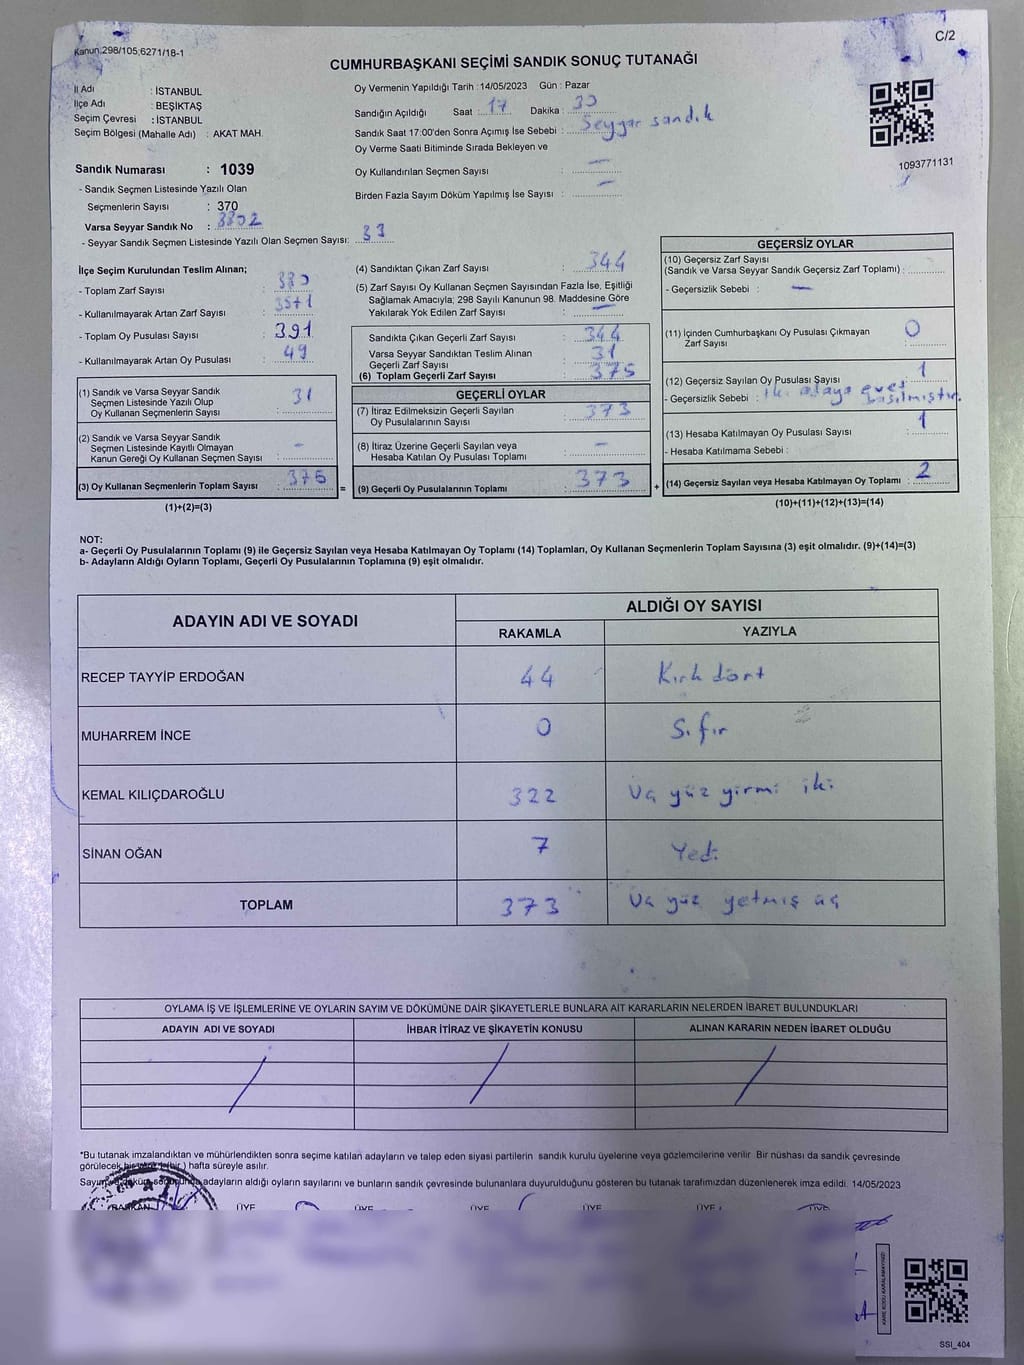 Kanun 298/105,6271/18-1
C/2
CUMHURBAŞKANI SEÇİMİ SANDIK SONUÇ TUTANAĞI
İl Adı : İSTANBUL
İlçe Adı : BEŞİKTAŞ
Seçim Çevresi : İSTANBUL
Seçim Bölgesi (Mahalle Adı) : AKAT MAH.
Oy Vermenin Yapıldığı Tarih : 14/05/2023 Gün : Pazar
Sandığın Açıldığı Saat : 17 Dakika : 30
Sandık Saat 17:00'den Sonra Açımış İse Sebebi : Seyyar sandık
Oy Verme Saati Bitiminde Sırada Bekleyen ve
Oy Kullandırılan Seçmen Sayısı : —
Birden Fazla Sayım Döküm Yapılmış İse Sayısı : —
1093771131
Sandık Numarası : 1039
- Sandık Seçmen Listesinde Yazılı Olan
Seçmenlerin Sayısı : 370
Varsa Seyyar Sandık No : 3802
- Seyyar Sandık Seçmen Listesinde Yazılı Olan Seçmen Sayısı: 33
İlçe Seçim Kurulundan Teslim Alınan;
- Toplam Zarf Sayısı :
- Kullanılmayarak Artan Zarf Sayısı :
- Toplam Oy Pusulası Sayısı : 391
- Kullanılmayarak Artan Oy Pusulası : 49
(1) Sandık ve Varsa Seyyar Sandık
Seçmen Listesinde Yazılı Olup
Oy Kullanan Seçmenlerin Sayısı : 31
(2) Sandık ve Varsa Seyyar Sandık
Seçmen Listesinde Kayıtlı Olmayan
Kanun Gereği Oy Kullanan Seçmen Sayısı : -
(3) Oy Kullanan Seçmenlerin Toplam Sayısı : 375 =
(1)+(2)=(3)
(4) Sandıktan Çıkan Zarf Sayısı : 344
(5) Zarf Sayısı Oy Kullanan Seçmen Sayısından Fazla İse, Eşitliği
Sağlamak Amacıyla; 298 Sayılı Kanunun 98. Maddesine Göre
Yakılarak Yok Edilen Zarf Sayısı : —
Sandıkta Çıkan Geçerli Zarf Sayısı : 344
Varsa Seyyar Sandıktan Teslim Alınan
Geçerli Zarf Sayısı : 31
(6) Toplam Geçerli Zarf Sayısı : 375
GEÇERLİ OYLAR
(7) İtiraz Edilmeksizin Geçerli Sayılan
Oy Pusulalarının Sayısı : 373
(8) İtiraz Üzerine Geçerli Sayılan veya
Hesaba Katılan Oy Pusulası Toplamı : —
(9) Geçerli Oy Pusulalarının Toplamı : 373 +
GEÇERSİZ OYLAR
(10) Geçersiz Zarf Sayısı
(Sandık ve Varsa Seyyar Sandık Geçersiz Zarf Toplamı) :
- Geçersizlik Sebebi : —
(11) İçinden Cumhurbaşkanı Oy Pusulası Çıkmayan
Zarf Sayısı : 0
(12) Geçersiz Sayılan Oy Pusulası Sayısı : 1
- Geçersizlik Sebebi : iki adaya evet basılmıştır.
(13) Hesaba Katılmayan Oy Pusulası Sayısı : 1
- Hesaba Katılmama Sebebi :
(14) Geçersiz Sayılan veya Hesaba Katılmayan Oy Toplamı : 2
(10)+(11)+(12)+(13)=(14)
NOT:
a- Geçerli Oy Pusulalarının Toplamı (9) ile Geçersiz Sayılan veya Hesaba Katılmayan Oy Toplamı (14) Toplamları, Oy Kullanan Seçmenlerin Toplam Sayısına (3) eşit olmalıdır. (9)+(14)=(3)
b- Adayların Aldığı Oyların Toplamı, Geçerli Oy Pusulalarının Toplamına (9) eşit olmalıdır.
ADAYIN ADI VE SOYADI
ALDIĞI OY SAYISI
RAKAMLA YAZIYLA
RECEP TAYYİP ERDOĞAN 44 Kırk dört
MUHARREM İNCE 0 Sıfır
KEMAL KILIÇDAROĞLU 322 Üç yüz yirmi iki
SİNAN OĞAN 7 Yedi
TOPLAM 373 Üç yüz yetmiş üç
OYLAMA İŞ VE İŞLEMLERİNE VE OYLARIN SAYIM VE DÖKÜMÜNE DAİR ŞİKAYETLERLE BUNLARA AİT KARARLARIN NELERDEN İBARET BULUNDUKLARI
ADAYIN ADI VE SOYADI İHBAR İTİRAZ VE ŞİKAYETİN KONUSU ALINAN KARARIN NEDEN İBARET OLDUĞU
*Bu tutanak imzalandıktan ve mühürlendikten sonra seçime katılan adayların ve talep eden siyasi partilerin sandık kurulu üyelerine veya gözlemcilerine verilir Bir nüshası da sandık çevresinde
görülecek bir yere 1 (bir) hafta süreyle asılır.
Sayım ve döküm sonucunda adayların aldığı oyların sayılarını ve bunların sandık çevresinde bulunanlara duyurulduğunu gösteren bu tutanak tarafımızdan düzenlenerek imza edildi. 14/05/2023
BAŞKAN ÜYE ÜYE ÜYE ÜYE ÜYE ÜYE
KARE KODU KARALAMAYINIZ!
SSI_404